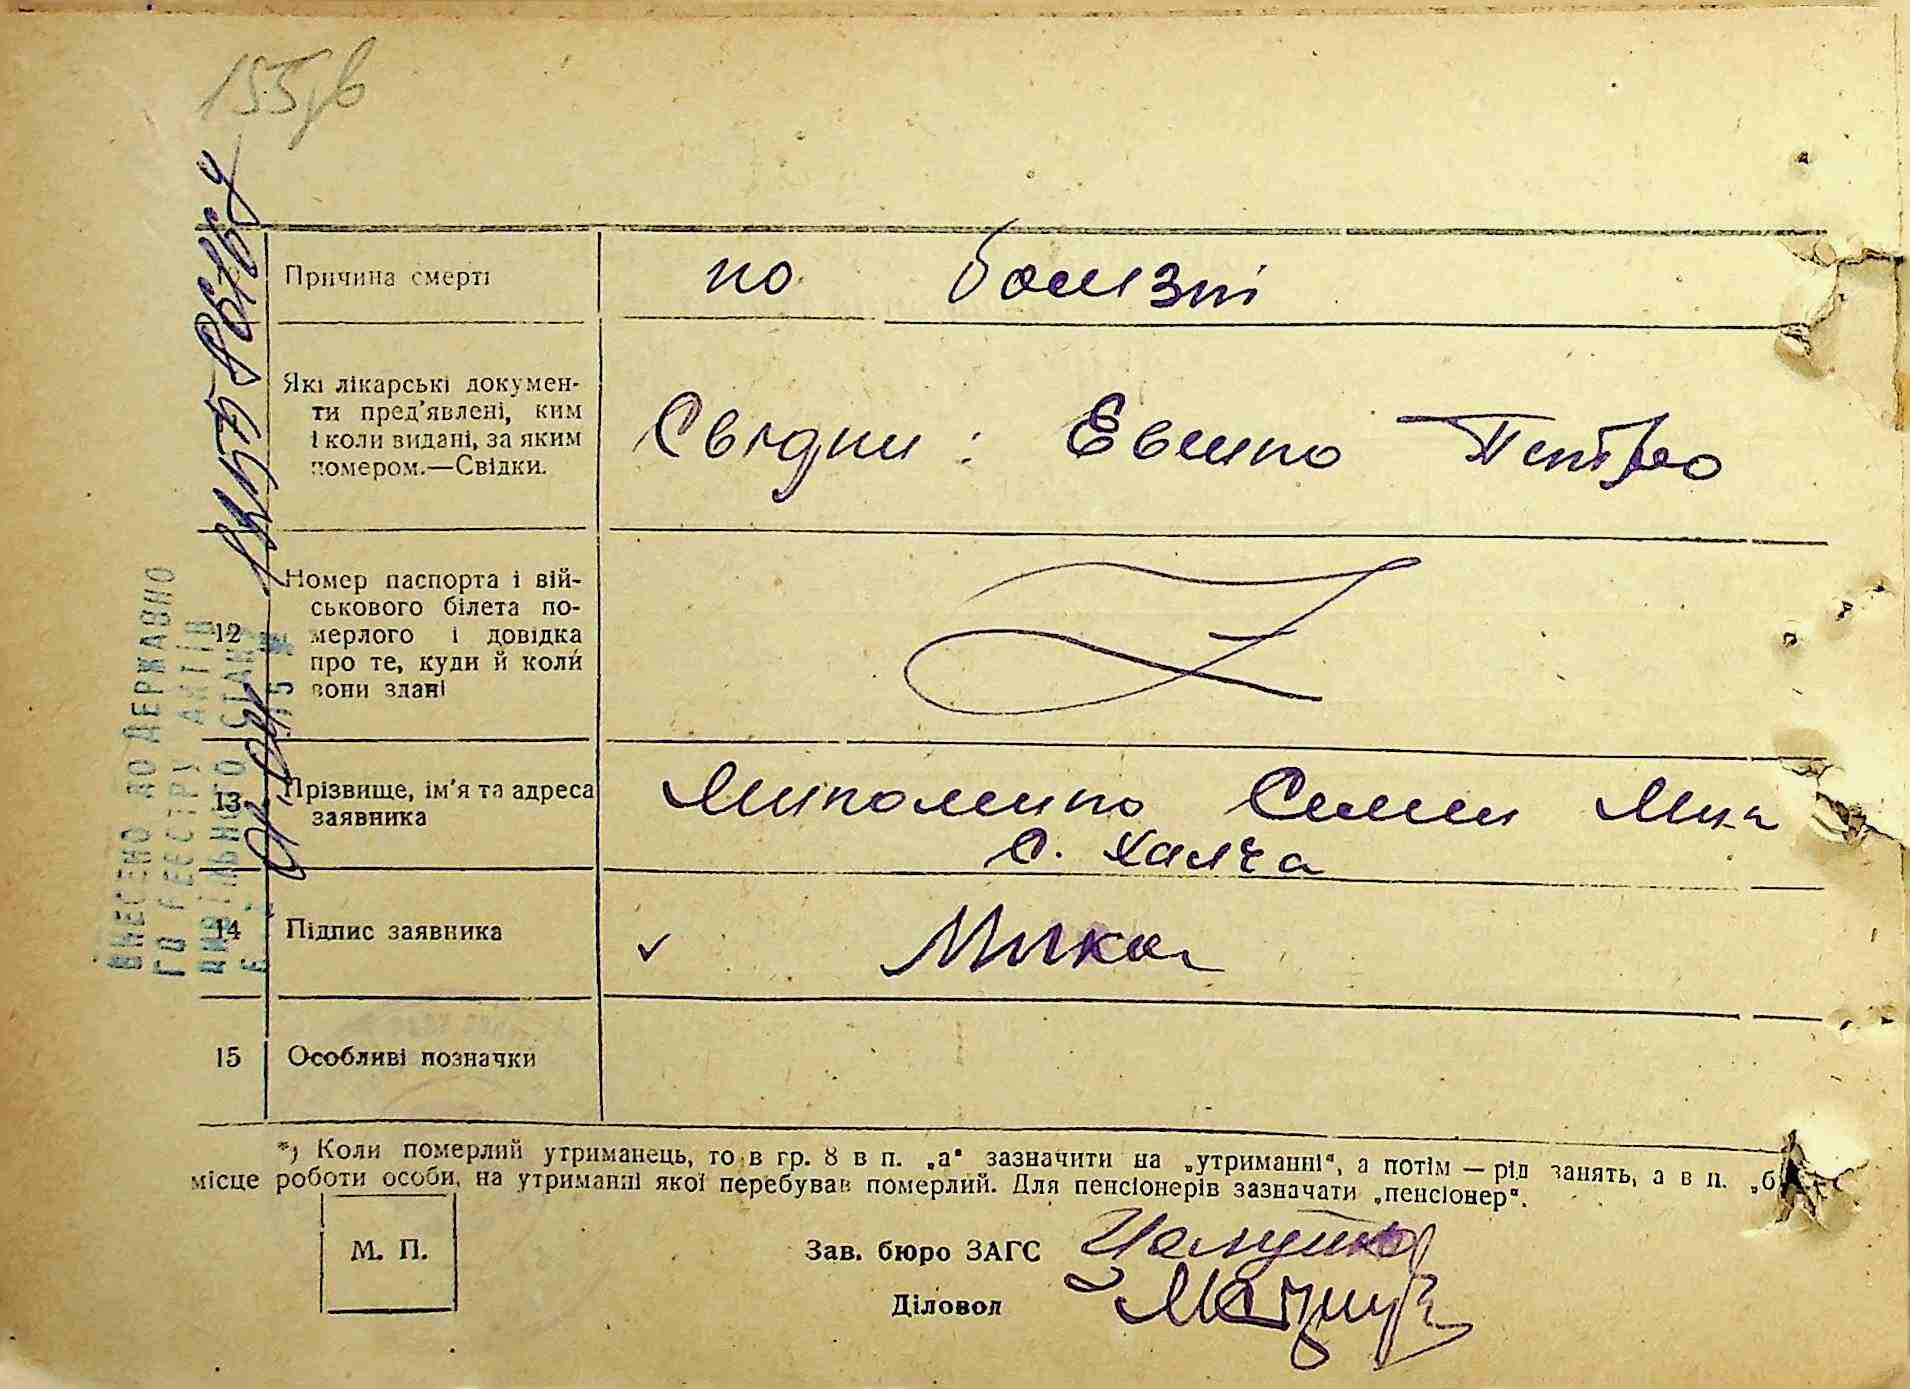 155зв
Причина смерті
по болизні
Які лікарські докумен-
ти пред'явлені, ким
і коли видані, за яким
номером.—Свідки.
Свідки: Евенко Петро
12
Номер паспорта і вій-
ськового білета по-
мерлого і довідка
про те, куди й коли
вони здані
13
Прізвище, ім'я та адреса
заявника
Миколенко Семен Мик
с. Халча
14
Підпис заявника
✓ Мико
15
Особливі позначки
*) Коли померлий утриманець, то в гр. 8 в п. „а“ зазначити на „утриманні“, а потім — рід занять, а в п. „б
місце роботи особи, на утриманні якої перебував померлий. Для пенсіонерів зазначати „пенсіонер“.
М. П.
Зав. бюро ЗАГС
Діловод
ВНЕСЕНО ДО ДЕРЖАВНО
ГО РЕЄСТРУ АКТІВ
ЦИВІЛЬНОГО СТАНУ